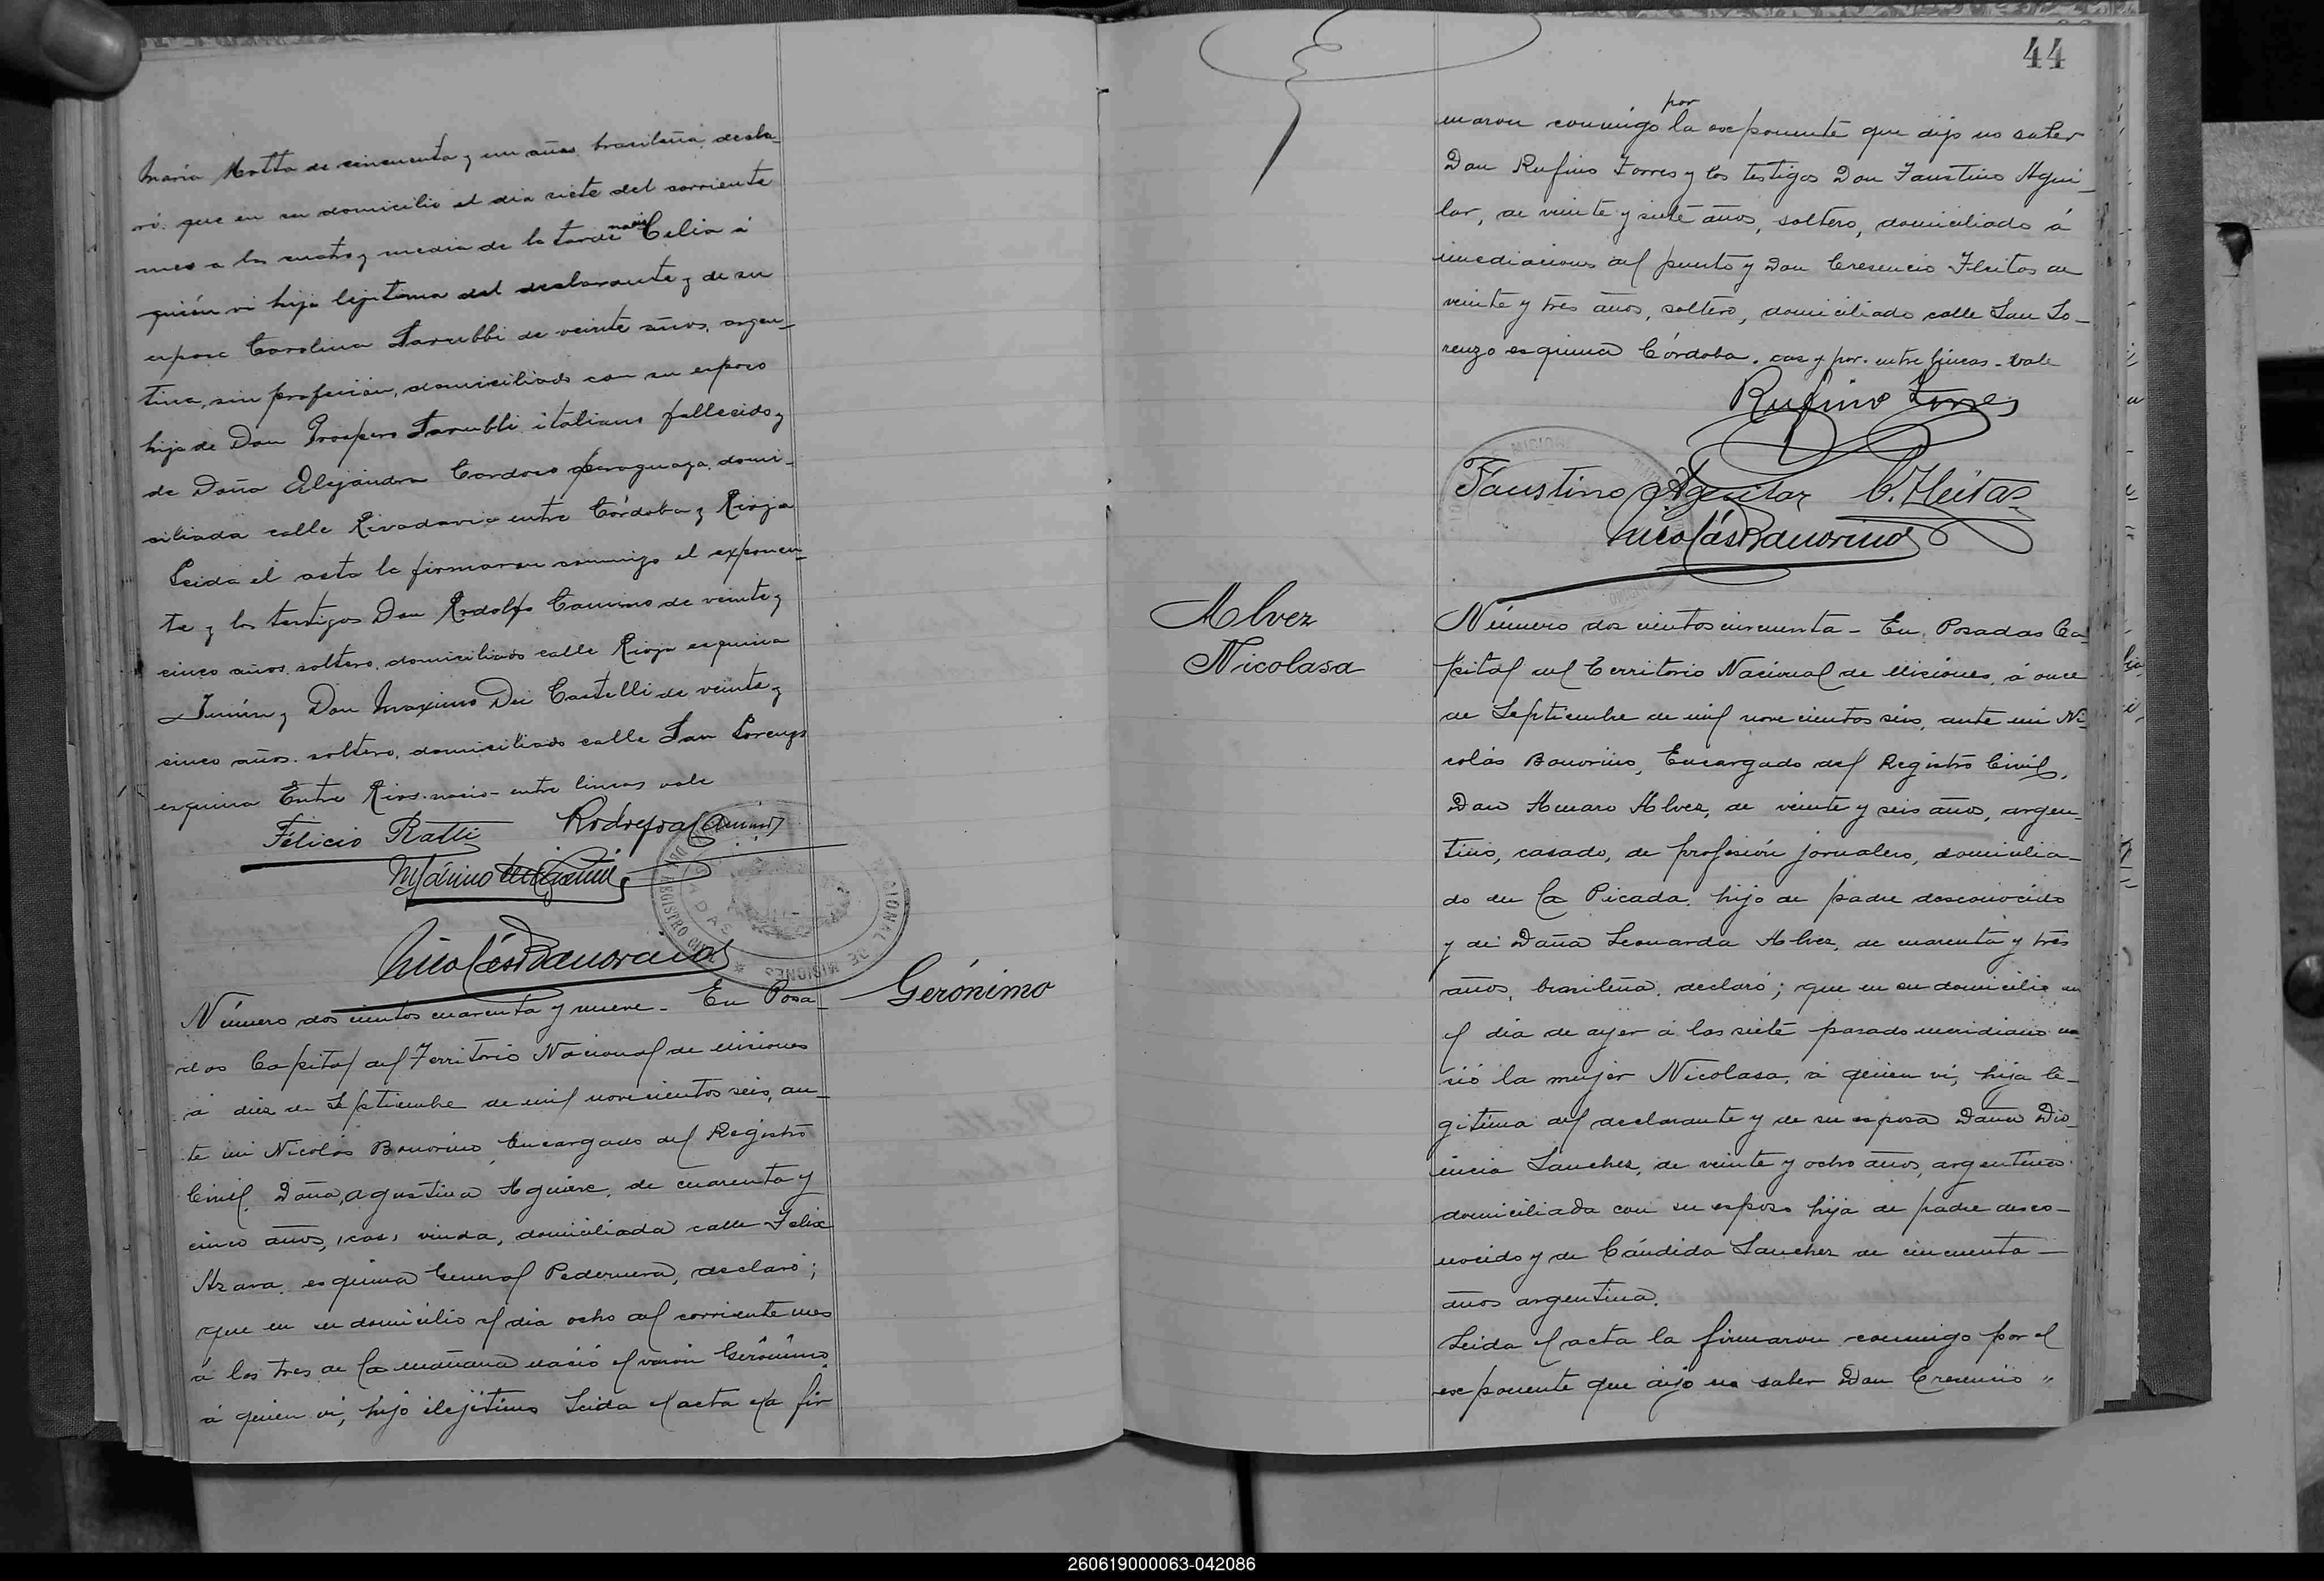 María Motta de cincuenta y un años brasileña, decla-
ró: que en su domicilio el dia siete del corriente
mes a las cuatro y media de la tarde nació Celia á
quién vi hija lejitima del declarante y de su
esposa Carolina Sarubbi de veinte años, argen-
tina, sin profesión, domiciliada con su esposo
hija de Don Prospero Sarubbi italiano fallecido y
de Doña Alejandra Cardoso paraguaya, domi-
ciliada calle Rivadavia entre Córdoba y Rioja
Leida el acta la firmaron conmigo el exponen-
te y los testigos Don Rodolfo Camino de veinte y
cinco años, soltero, domiciliado calle Rioja esquina
Junín y Don Maximo Dei Castelli de veinte y
cinco años, soltero, domiciliado calle San Lorenzo
esquina Entre Rios. nació - entre lineas vale
Felicio Ratti Rodolfo Camino
Máximo
Nicolás Bonorino
REGISTRO CIVIL POSADAS NACIONAL DE MISIONES
Gerónimo
Número dos cientos cuarenta y nueve - En Posa-
das Capital del Territorio Nacional de Misiones
á diez de Septiembre de mil novecientos seis, an-
te mi Nicolás Bonorino, Encargado del Registro
Civil, Doña Agustina Aguirre, de cuarenta y
cinco años, viuda, domiciliada calle Felix
Azara, esquina General Pedernera, declaró;
que en su domicilio el dia ocho del corriente mes
á las tres de la mañana nació el varón Gerónimo
á quien vi, hijo ilejitimo Leida el acta la fir
44
maron conmigo por la exponente que dijo no saber
Don Rufino Torres y los testigos Don Faustino Agui-
lar, de veinte y siete años, soltero, domiciliado á
imediaciones del puerto y Don Cresencio Fleitas de
veinte y tres años, soltero, domiciliado calle San Lo-
renzo esquina Córdoba. cas y por. entre lineas - Vale
Rufino Torres
Faustino Aguilar C. Fleitas
Nicolás Bonorino
Alvez
Nicolasa
Número dos cientos cincuenta - En Posadas Ca
pital del Territorio Nacional de Misiones, á once
de Septiembre de mil novecientos seis, ante mi Ni
colás Bonorino, Encargado del Registro Civil,
Don Amaro Alvez, de veinte y seis años, argen-
tino, casado, de profesión jornalero, domicilia-
do en la Picada, hijo de padre desconocido
y de Doña Leonarda Alvez, de cuarenta y tres
años, brasileña, declaró; que en su domicilio en
el dia de ayer á las siete pasado meridiano na
ció la mujer Nicolasa, á quien vi, hija le-
gitima del declarante y de su esposa Doña Dio-
nicia Sanchez, de veinte y ocho años, argentina
domiciliada con su esposo hija de padre desco-
nocido y de Cándida Sanchez de cincuenta -
años argentina.
Leida el acta la firmaron conmigo por el
exponente que dijo no saber Don Cresencio "
260619000063-042086